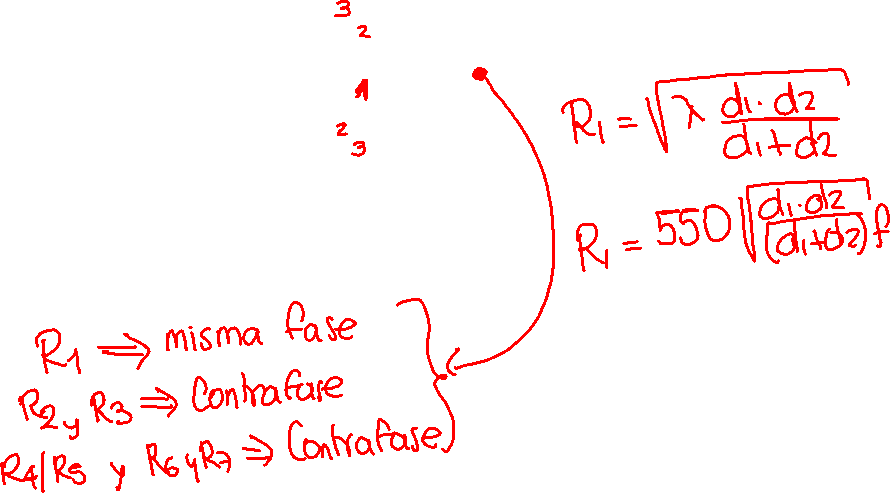 3
2
1
2
3
R1 = √(λ (d1·d2)/(d1+d2))
R1 = 550 √((d1·d2)/((d1+d2)f))
R1 ⇒ misma fase
R2 y R3 ⇒ Contrafase
R4/R5 y R6 y R7 ⇒ Contrafase